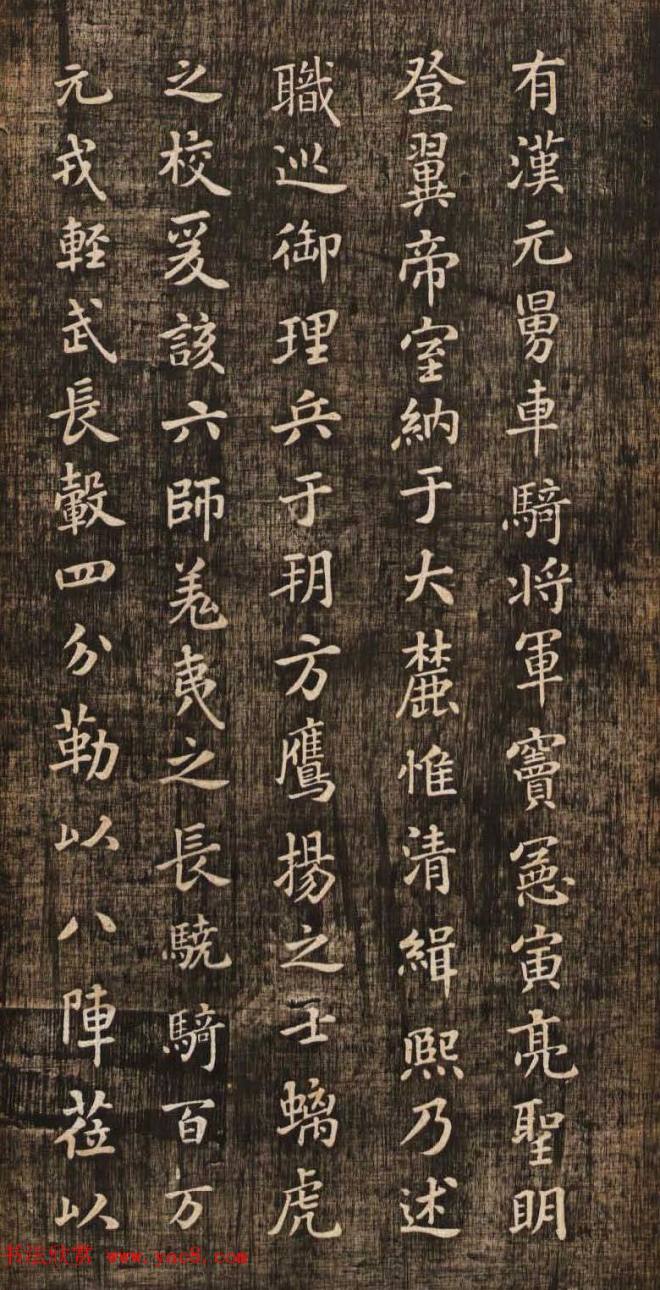 有漢元舅車騎将軍竇憲寅亮聖明
登翼帝室納于大麓惟清緝熙乃述
職巡御理兵于朔方鷹揚之士螭虎
之校爰該六師羌夷之長驍騎百万
元戎軽武長轂四分勒以八陣莅以
书法欣赏 www.yac8.com